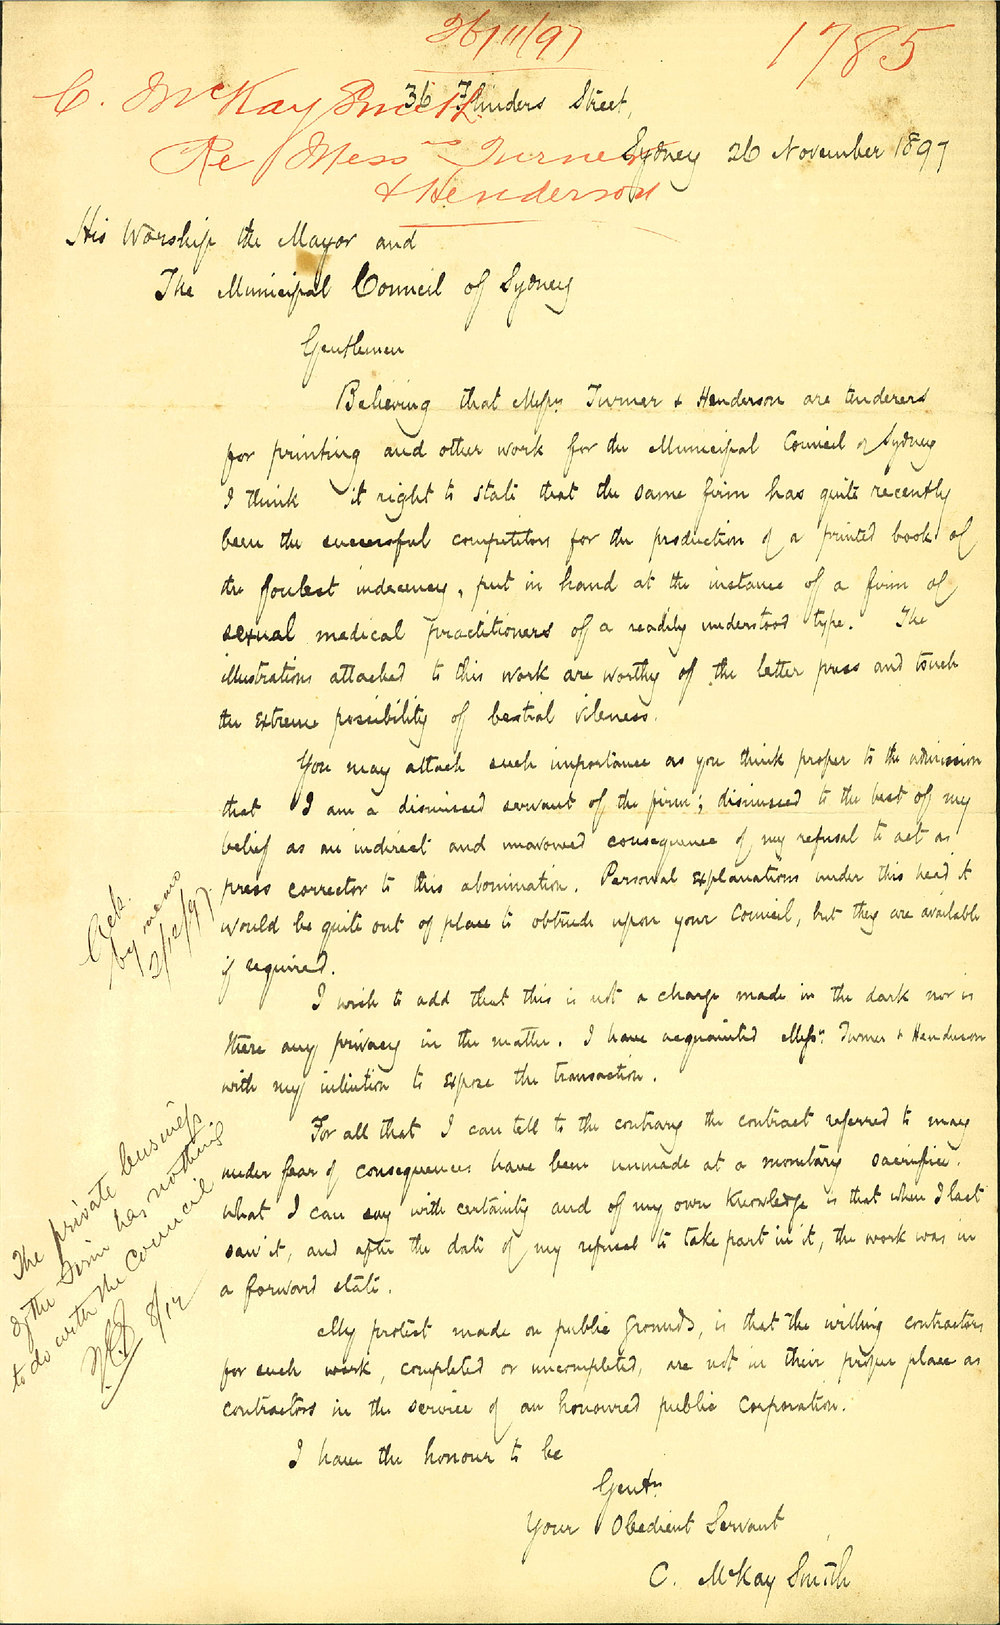 26/11/97
1785
C. McKay Smith
36 Flinders Street,
Re Messrs Turner
Sydney 26 November 1897
& Henderson
His Worship the Mayor and
The Municipal Council of Sydney
Gentlemen
Believing that Messrs Turner & Henderson are tenderers
for printing and other work for the Municipal Council of Sydney
I think it right to state that the same firm has quite recently
been the successful competitors for the production of a printed book of
the foulest indecency, put in hand at the instance of a firm of
sexual medical practitioners of a readily understood type. The
illustrations attached to this work are worthy of the letter press and touch
the extreme possibility of bestial vileness.
You may attach such importance as you think proper to the admission
that I am a dismissed servant of the firm; dismissed to the best of my
belief as an indirect and unavowed consequence of my refusal to act as
press corrector to this abomination. Personal explanations under this head it
would be quite out of place to obtrude upon your Council, but they are available
if required.
I wish to add that this is not a charge made in the dark nor is
there any privacy in the matter. I have acquainted Messrs Turner & Henderson
with my intention to expose the transaction.
For all that I can tell to the contrary the contract referred to may
under fear of consequences have been unmade at a monetary sacrifice.
What I can say with certainty and of my own knowledge is that when I last
saw it, and after the date of my refusal to take part in it, the work was in
a forward state.
My protest made on public grounds, is that the willing contractors
for such work, completed or uncompleted, are not in their proper place as
contractors in the service of an honoured public Corporation.
I have the honour to be
Gentn
Your Obedient Servant
C. McKay Smith
Ack.
by memo
2/12/97
The private business
of the Firm has nothing
to do with the Council
8/12